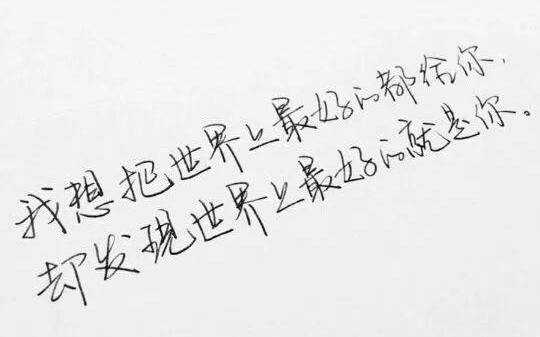 我想把世界上最好的都给你.
却发现世界上最好的就是你。